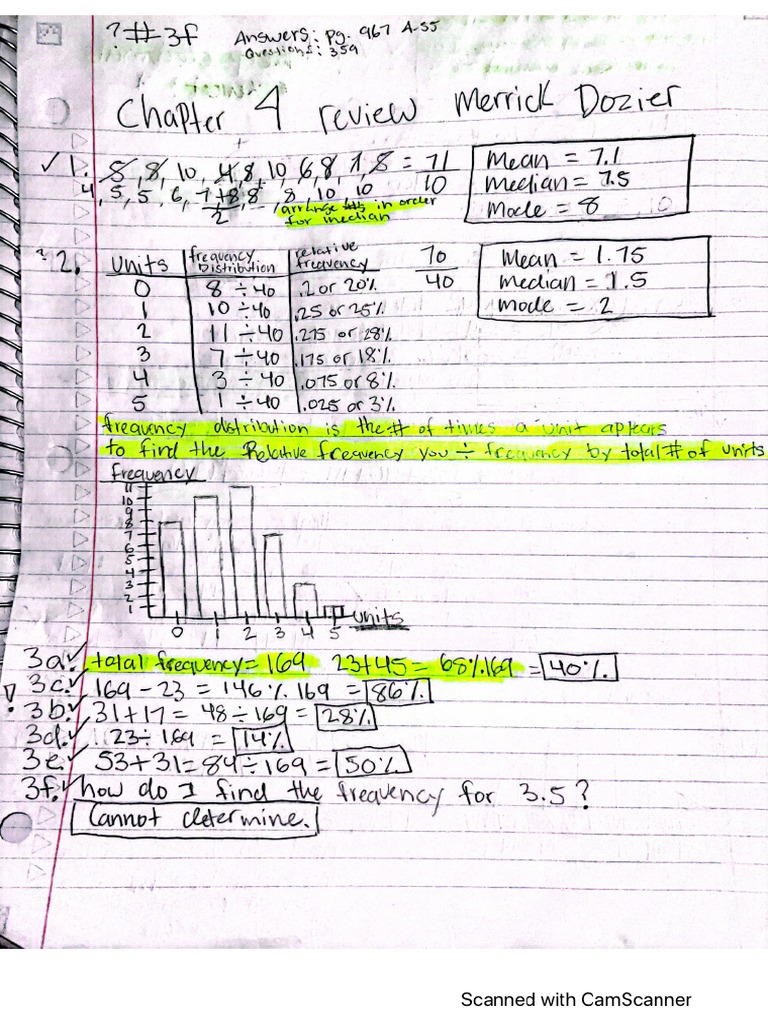 ?#3f Answers: pg. 967 A-55
Questions: 359
Chapter 4 review Merrick Dozier
✓ 1. 5, 8, 10, 4, 8, 10, 6, 8, 7, 8 = 71/10
4, 5, 5, 6, 7+8/2, 8, 8, 8, 10, 10
arrange #s in order
for median
Mean = 7.1
median = 7.5
Mode = 8
? 2.
units | frequency Distribution | relative frequency
0 | 8 ÷ 40 | .2 or 20%
1 | 10 ÷ 40 | .25 or 25%
2 | 11 ÷ 40 | .275 or 28%
3 | 7 ÷ 40 | .175 or 18%
4 | 3 ÷ 40 | .075 or 8%
5 | 1 ÷ 40 | .025 or 3%
70/40
Mean = 1.75
median = 1.5
mode = 2
frequency distribution is the # of times a unit appears
to find the Relative frequency you ÷ frequency by total # of units
frequency
11
10
9
8
7
6
5
4
3
2
1
0 1 2 3 4 5 units
3a. ✓ total frequency = 169 23+45 = 68 ÷ 169 = 40%
! 3c. ✓ 169 - 23 = 146 ÷ 169 = 86%
3b. ✓ 31+17 = 48 ÷ 169 = 28%
3d. ✓ 23 ÷ 169 = 14%
3e. ✓ 53+31 = 84 ÷ 169 = 50%
3f. ✓ how do I find the frequency for 3.5?
Cannot determine.
Scanned with CamScanner